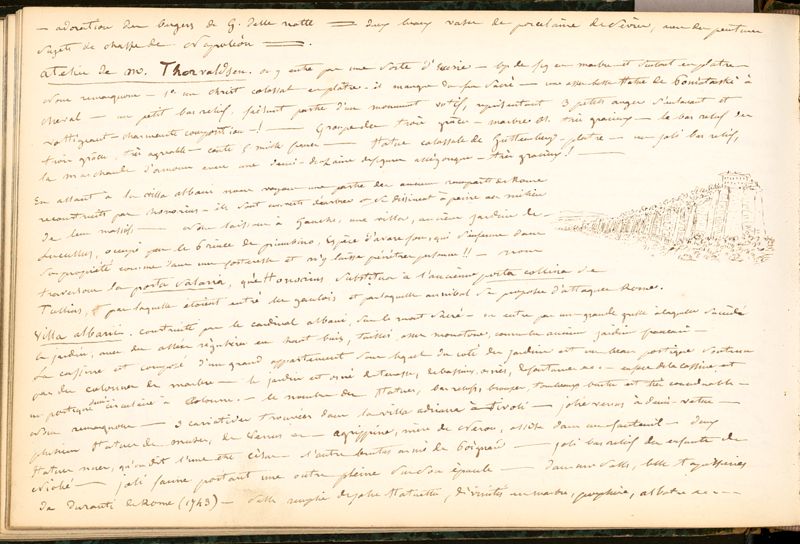 — adoration des bergers de G. delle notte — deux beaux vases de porcelaine de Sèvres, avec des peintures
sujets de chasse de Napoléon —.
atelier de M. Thorvaldsen. on y entre par une sorte d'écurie — en marbre et surtout en plâtre —
nous remarquons — 1° un christ colossal en plâtre. il manque de feu sacré — une assez belle statue de Poniatowski à
cheval — un petit bas relief, faisant partie d'un monument votif, représentant 3 petits anges s'enlaçant et
voltigeant — charmante composition —! — Groupe des trois grâces — marbre — très gracieux — le bas relief des
trois grâces, très agréable — coûte 6 mille francs — statue colossale de Guttenberg — plâtre — un joli bas relief,
la marchande d'amours encore une demi-douzaine allégorique — très gracieux! —
En allant à la villa albani nous voyons une partie des anciens remparts de Rome
reconstruits par honorius — ils sont couverts d'arbres et se dessinent à peine au milieu
de leur massif — on laisse à Gauche, une villa, ancien jardin de
Lucullus, occupé par le Prince de piombino, espèce d'avare fou, qui s'enferme dans
sa propriété comme dans une forteresse et n'y laisse pénétrer personne!! — nous
traversons la porta Salaria, qu'Honorius substitua à l'ancienne porta collina de
Tullius, par laquelle étaient entrés les gaulois et par laquelle annibal se proposa d'attaquer Rome.
Villa albani. construite par le cardinal albani, sur le mont Sacré — on entre par une grande grille à laquelle succède
le jardin, avec des allées régulières en haut buis, taillés assez monotone, comme les anciens jardins français —
La cassine est composée d'un grand appartement sous lequel du coté du jardin est un beau portique soutenu
par des colonnes de marbre — le jardin est orné de terrasses, de bassins, de fontaines &c. — en face de la cassine, est
un portique demi circulaire à colonnes. — le nombre des statues, bas reliefs, bronzes, tombeaux, bustes est très considérable —
nous remarquons — 2 cariatides trouvées dans la villa adriana à Tivoli — jolie venus à demi-vetue —
plusieurs statues de muses, de Venus &c — agrippine, mère de néron, assise dans un fauteuil — deux
statues nues, qu'on dit l'une être César — l'autre brutus armé de poignard — joli bas relief des enfants de
Niobé — joli faune portant une outre pleine sur son épaule — dans une salle, belle tapisseries
de duranti de Rome (1743) — salle remplie de jolies statuettes, divinités en marbre, porphyre, albatre &c —